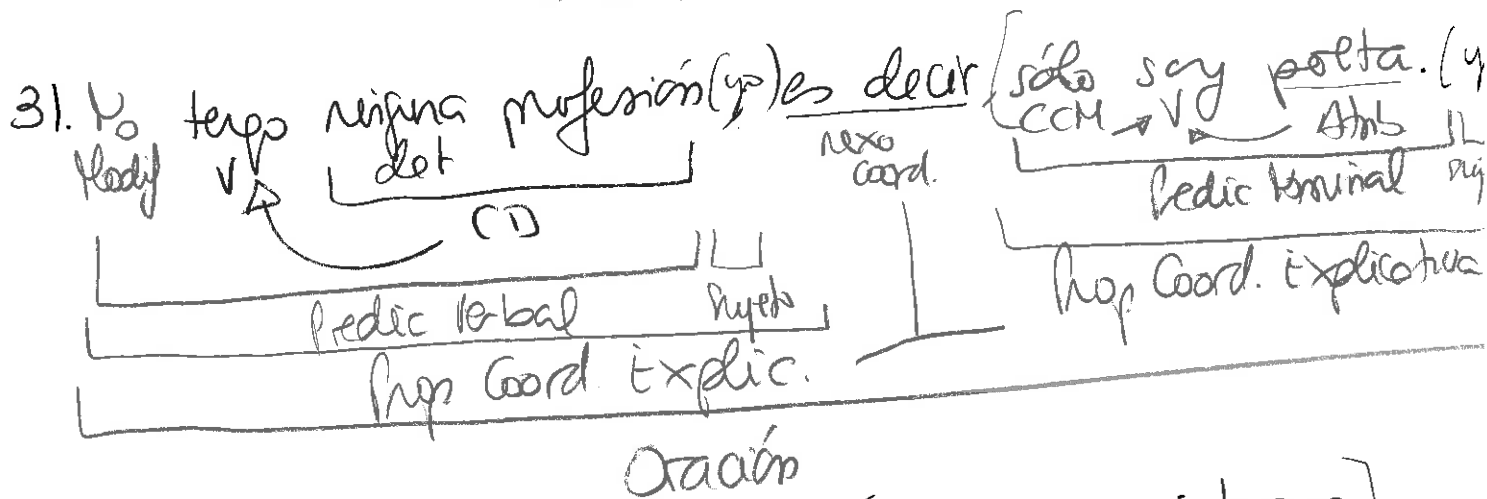 31. No tengo ninguna profesión (yo) es decir sólo soy poeta. (y
Modif V det nexo coord. CCM V Atrib
CD Predic Nominal Suj
Predic Verbal Sujeto Prop Coord. Explicativa
Prop Coord Explic.
Oración